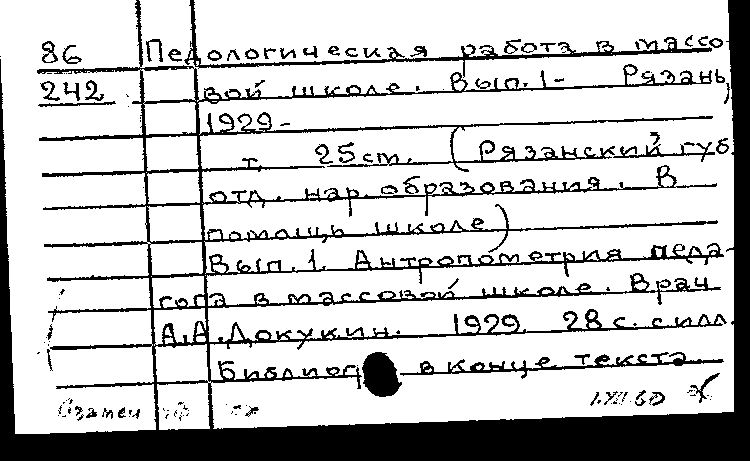 86 Педологическая работа в массо-
242 вой школе. Вып. 1- Рязань,
1929-
т. 25 cm. (Рязанский губ.
отд. нар. образования. В
помощь школе)
Вып. 1. Антропометрия педа-
гога в массовой школе. Врач
А.А. Докукин. 1929. 28 с. с илл.
Библиогр в конце текста
1.XII.60